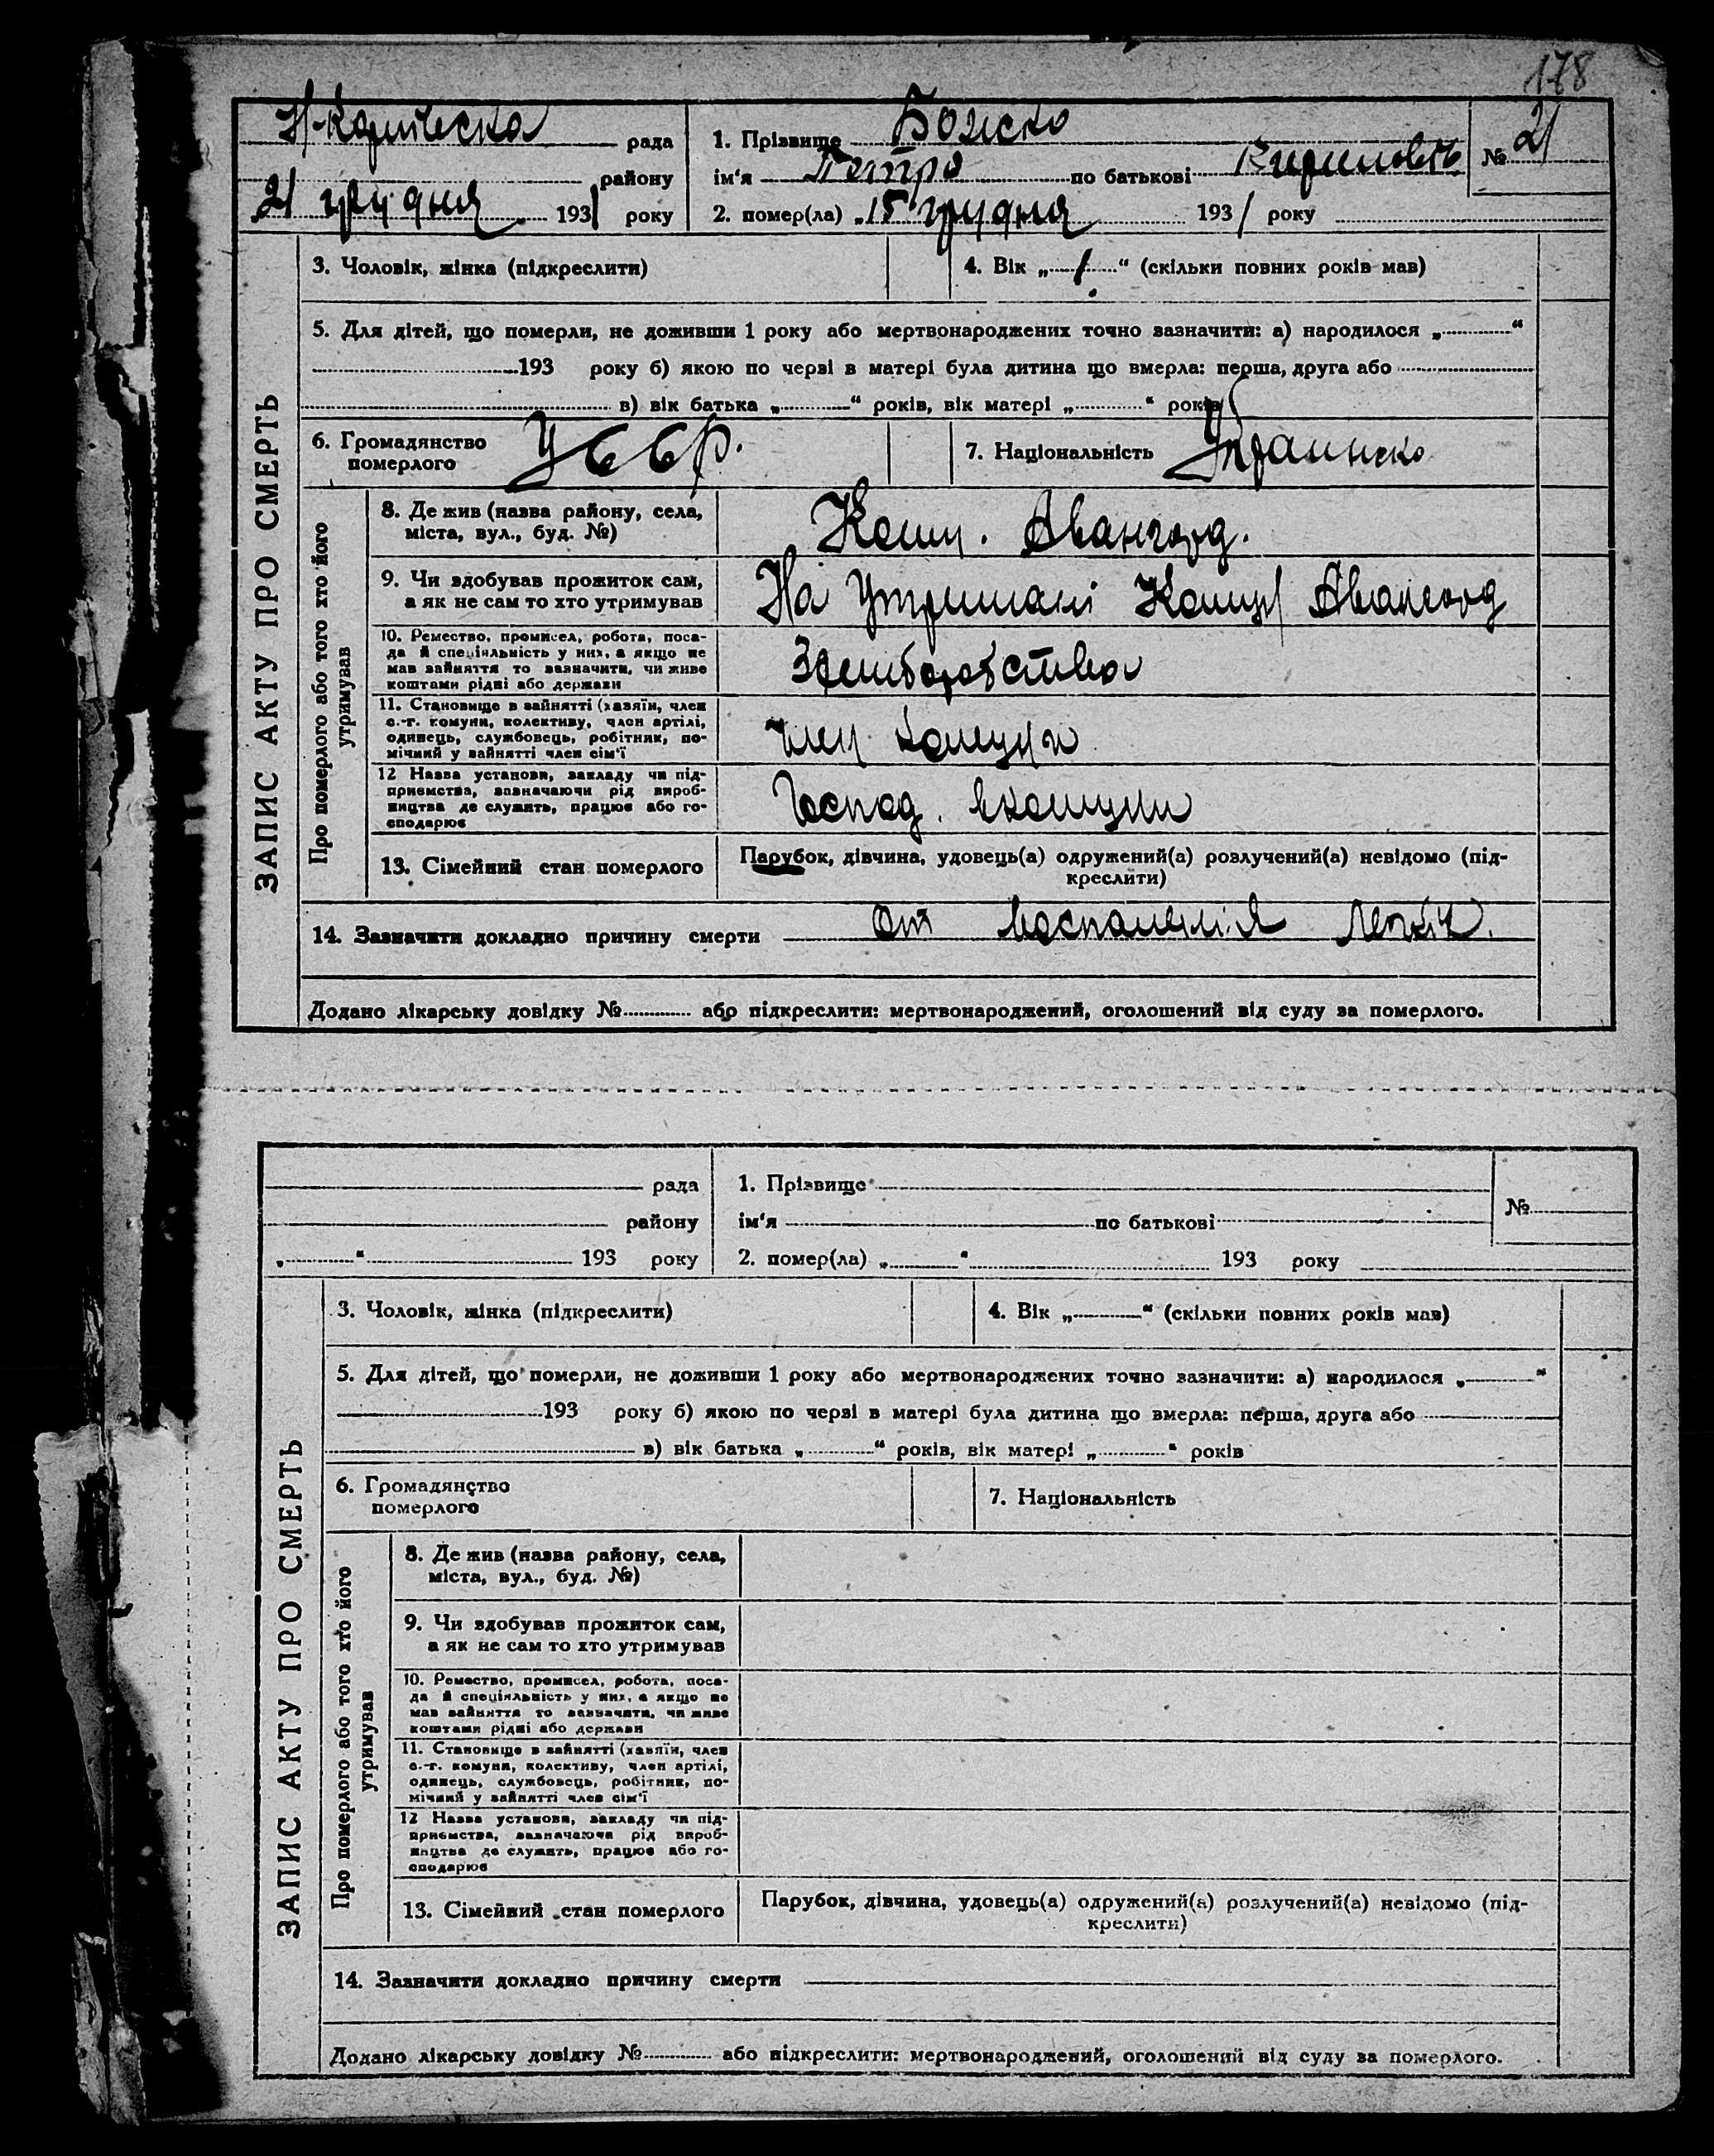 178
рада 1. Прізвище Божко № 21
району ім'я Петро по батькові
21 грудня 1931 року 2. помер(ла) „15 грудня 1931 року
ЗАПИС АКТУ ПРО СМЕРТЬ
3. Чоловік, жінка (підкреслити) 4. Вік „1“ (скільки повних років мав)
5. Для дітей, що померли, не доживши 1 року або мертвонароджених точно зазначити: а) народилося „ “
193 року б) якою по черзі в матері була дитина що вмерла: перша, друга або
в) вік батька „ “ років, вік матері „ “ років
6. Громадянство УССР. 7. Національність
померлого
Про померлого або того хто його
утримував
8. Де жив (назва району, села, Комн. Авангард.
міста, вул., буд. №)
9. Чи здобував прожиток сам, На Утримані Авангард
а як не сам то хто утримував
10. Ремество, промисел, робота, поса-
да й спеціяльність у них, а якщо не
мав зайняття то зазначити, чи живе
коштами рідні або держави
11. Становище в зайнятті (хазяїн, член
с.-г. комуни, колективу, член артілі,
одинець, службовець, робітник, по-
мічний у зайнятті член сім'ї
член комуни
12 Назва установи, закладу чи під-
приємства, зазначаючи рід вироб-
ництва де служить, працює або го-
сподарює
Господ. вкомуни
13. Сімейний стан померлого Парубок, дівчина, удовець(а) одружений(а) розлучений(а) невідомо (під-
креслити)
14. Зазначити докладно причину смерти от воспаленія легких.
Додано лікарську довідку № або підкреслити: мертвонароджений, оголошений від суду за померлого.
рада 1. Прізвище №
району ім'я по батькові
„ “ 193 року 2. помер(ла) „ “ 193 року
ЗАПИС АКТУ ПРО СМЕРТЬ
3. Чоловік, жінка (підкреслити) 4. Вік „ “ (скільки повних років мав)
5. Для дітей, що померли, не доживши 1 року або мертвонароджених точно зазначити: а) народилося „ “
193 року б) якою по черзі в матері була дитина що вмерла: перша, друга або
в) вік батька „ “ років, вік матері „ “ років
6. Громадянство 7. Національність
померлого
Про померлого або того хто його
утримував
8. Де жив (назва району, села,
міста, вул., буд. №)
9. Чи здобував прожиток сам,
а як не сам то хто утримував
10. Ремество, промисел, робота, поса-
да й спеціяльність у них, а якщо не
мав зайняття то зазначити, чи живе
коштами рідні або держави
11. Становище в зайнятті (хазяїн, член
с.-г. комуни, колективу, член артілі,
одинець, службовець, робітник, по-
мічний у зайнятті член сім'ї
12 Назва установи, закладу чи під-
приємства, зазначаючи рід вироб-
ництва де служить, працює або го-
сподарює
13. Сімейний стан померлого Парубок, дівчина, удовець(а) одружений(а) розлучений(а) невідомо (під-
креслити)
14. Зазначити докладно причину смерти
Додано лікарську довідку № або підкреслити: мертвонароджений, оголошений від суду за померлого.